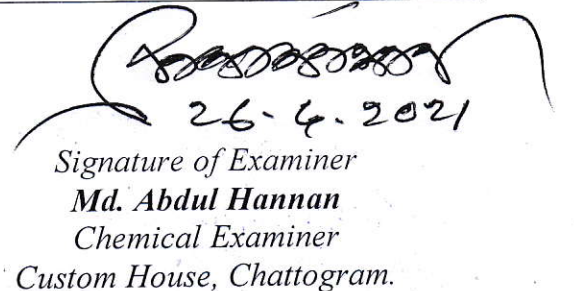 26-4-2021
Signature of Examiner
Md. Abdul Hannan
Chemical Examiner
Custom House, Chattogram.